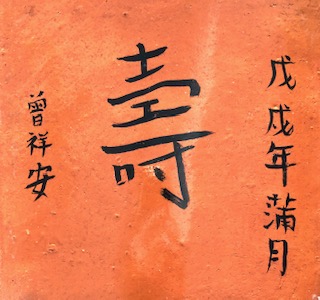 戊戌年蒲月
壽
曾祥安